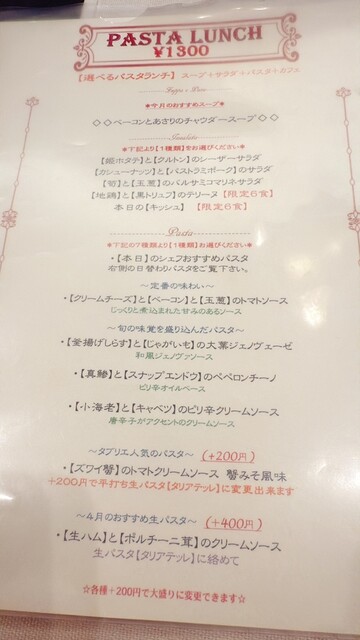 PASTA LUNCH
¥1300
【選べるパスタランチ】 スープ+サラダ+パスタ+カフェ
※今月のおすすめスープ※
◇◇ベーコンとあさりのチャウダースープ◇◇
※下記より【1種類】をお選びください※
【姫ホタテ】と【クルトン】のシーザーサラダ
【カシューナッツ】と【パストラミポーク】のサラダ
【筍】と【玉葱】のバルサミコマリネサラダ
【地鶏】と【黒トリュフ】のテリーヌ【限定6食】
本日の【キッシュ】 【限定6食】
Pasta
※下記の7種類より【1種類】お選びください※
・【本日】のシェフおすすめパスタ
右側の日替わりパスタをご覧下さい。
~定番の味わい~
・【クリームチーズ】と【ベーコン】と【玉葱】のトマトソース
じっくりと煮込まれた甘みのあるソース
~旬の味覚を盛り込んだパスタ~
・【釜揚げしらす】と【じゃがいも】の大葉ジェノヴェーゼ
和風ジェノヴァソース
・【真鯵】と【スナップエンドウ】のペペロンチーノ
ピリ辛オイルベース
・【小海老】と【キャベツ】のピリ辛クリームソース
唐辛子がアクセントのクリームソース
~タブリエ人気のパスタ~ (+200円)
・【ズワイ蟹】のトマトクリームソース 蟹みそ風味
+200円で平打ち生パスタ【タリアテッレ】に変更出来ます
~4月のおすすめ生パスタ~ (+400円)
・【生ハム】と【ポルチーニ茸】のクリームソース
生パスタ【タリアテッレ】に絡めて
☆各種+200円で大盛りに変更できます☆